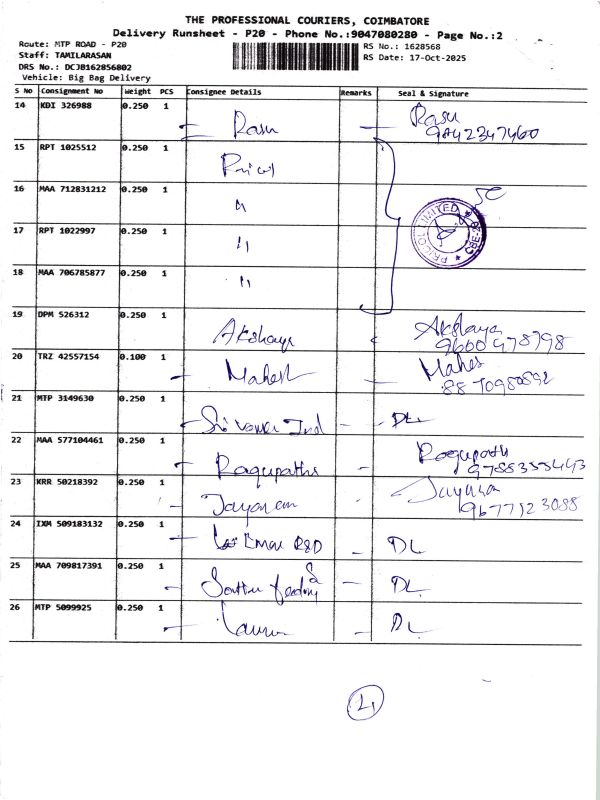 THE PROFESSIONAL COURIERS, COIMBATORE
Delivery Runsheet - P20 - Phone No.:9047080280 - Page No.:2
Route: MTP ROAD - P20
RS No.: 1628568
Staff: TAMILARASAN
RS Date: 17-Oct-2025
DRS No.: DCJB162856802
Vehicle: Big Bag Delivery
S No Consignment No Weight PCS Consignee Details Remarks Seal & Signature
14 KDI 326988 0.250 1 Rasu Rasu
9842347460
15 RPT 1025512 0.250 1 Pricol
16 MAA 712831212 0.250 1 "
PRICOL LIMITED
17 RPT 1022997 0.250 1 "
18 MAA 706785877 0.250 1 "
19 DPM 526312 0.250 1 Akshaya Akshaya
9600478798
20 TRZ 42557154 0.100 1 Mahesh Mahes
8870980892
21 MTP 3149630 0.250 1 Sri Ind DL
22 MAA 577104461 0.250 1 Ragupathi Ragupath
9788355443
23 KRR 50218392 0.250 1 Jayaram Jayaram
9677123088
24 IXM 509183132 0.250 1 R&D DL
25 MAA 709817391 0.250 1 DL
26 MTP 5099925 0.250 1 DL